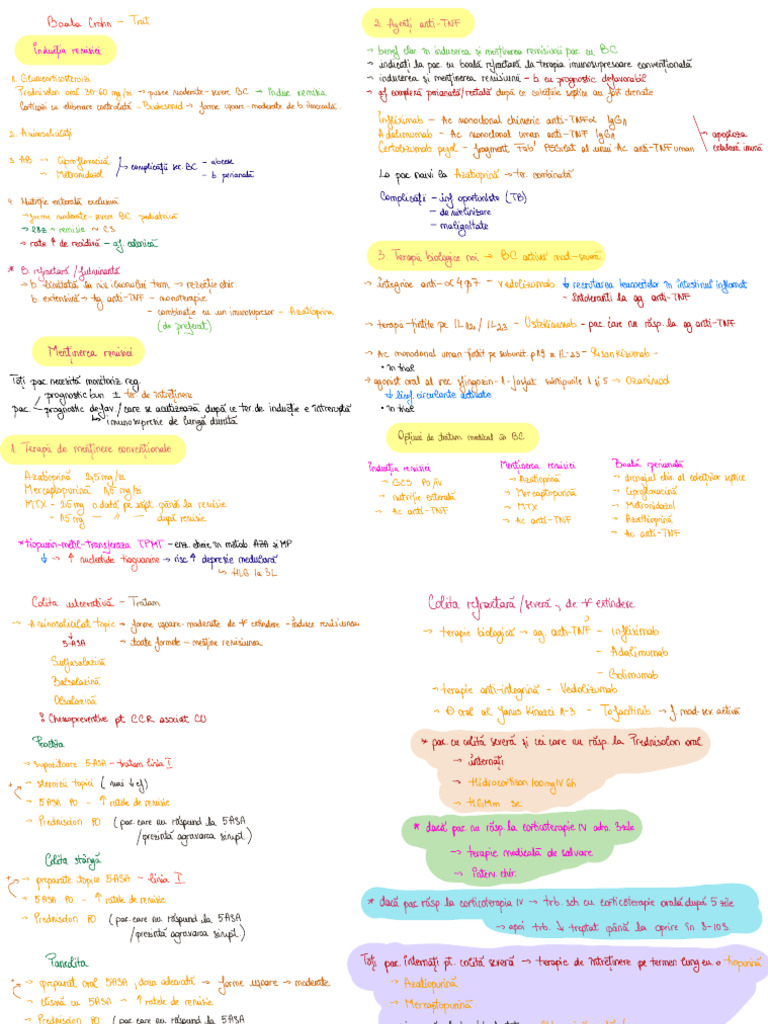 Boala Crohn - Trat
Inducția remisiei
1. Glucocorticosteroizi
Prednisolon oral 30-60 mg/zi → pusee moderate-severe BC → Induc remisia
Corticoizi cu eliberare controlată - Budesonid → forme ușoare-moderate de b. ileocecală.
2. Aminosalicilați
3. AB → Ciprofloxacină
→ Metronidazol
→ complicații sec. BC - abcese
- b. perianală
4. Nutriție enterală exclusivă
→ forme moderate-severe BC pediatrică
→ remisie ~ CS
→ rate ↑ de recidivă - af. colonică
* B. refractară / fulminantă
→ b. localizată la niv. ileonului term → rezecție chir.
b. extensivă → ag anti-TNF - monoterapie
- combinație cu un imunosupresor - Azatioprina
(de preferat)
Menținerea remisiei
Toți pac. necesită monitoriz. reg.
prognostic bun ± ter. de întreținere
pac. prognostic defav./care se acutizează după ce ter. de inducție e întreruptă
↳ imunosupresie de lungă durată
1. Terapia de menținere convențională
Azatioprină 2,5 mg/zi
Mercaptopurină 1,5 mg/zi
MTX - 25 mg o dată pe săpt. până la remisie
- 15 mg — " — după remisie
* tiopurin-metil-transferaza TPMT - enz. cheie în metab. AZA și MP
↓ → ↑ nucleotide tioguanine → risc ↑ depresie medulară
↳ HLG la 3L
2. Agenți anti-TNF
→ benef. clar în inducerea și menținerea remisiunii pac cu BC
→ indicați la pac cu boală refractară la terapia imunosupresoare convențională
→ inducerea și menținerea remisiunii - b cu prognostic defavorabil
→ af complexă perianală/rectală după ce colecțiile septice au fost drenate
Infliximab - Ac monoclonal chimeric anti-TNFα IgG1
Adalimumab - Ac monoclonal uman anti-TNF IgG1
Certolizumab pegol - fragment Fab' PEGilat al unui Ac anti-TNF uman
→ apoptoza
celulară imună
La pac naivi la Azatioprină → ter. combinată
Complicații - inf oportuniste (TB)
- demielinizare
- malignitate
3. Terapii biologice noi → BC activă mod-severă
→ integrine anti-α4β7 - vedolizumab ↓ recrutarea leucocitelor în intestinul inflamat
- Intoleranți la ag anti-TNF
→ terapii țintite pe IL-12/IL-23 - Ustekinumab - pac. care nu răsp. la ag anti-TNF
→ Ac monoclonal uman țintit pe subunit. p19 a IL-23 - Risankizumab -
• în trial
→ agonist oral al rec. sfingozin-1-fosfat subtipurile 1 și 5 → Ozanimod
↓ limf. circulante activate
• în trial
Opțiuni de tratam medical în BC
Inducția remisiei
→ GCS PO/iv
→ nutriție enterală
→ Ac anti-TNF
Menținerea remisiei
→ Azatioprină
→ Mercaptopurină
→ MTX
→ Ac anti-TNF
Boală perianală
→ drenajul chir. al colecțiilor septice
→ Ciprofloxacină
→ Metronidazol
→ Azathioprină
→ Ac anti-TNF
Colita ulcerativă - Tratam
→ Aminosalicilat topic → forme ușoare-moderate de ∀ extindere - induce remisiunea
5-ASA → toate formele - menține remisiunea
Sulfasalazină
Balsalazină
Olsalazină
Chemopreventive pt CCR asociat CU
Proctita
→ supozitoare 5-ASA - tratam linia I
→ steroizi topici (mai ↓ ef)
→ 5ASA PO - ↑ ratele de remisie
→ Prednisolon PO (pac. care nu răspund la 5ASA
/prezintă agravarea simpt.)
Colita stângă
→ preparate topice 5ASA - linia I
→ 5ASA PO - ↑ ratele de remisie
→ Prednisolon PO (pac. care nu răspund la 5ASA
/prezintă agravarea simpt.)
Pancolita
→ preparat oral 5ASA, doza adecvată → forme ușoare → moderate
→ clismă cu 5ASA → ↑ ratele de remisie
→ Prednisolon PO (pac. care nu răspund la 5ASA
Colita refractară/severă, de ∀ extindere
→ terapie biologică → ag. anti-TNF - Infliximab
- Adalimumab
- Golimumab
→ terapie anti-integrină - Vedolizumab
oral al Janus Kinazei 1-3 - Tofacitinib → f mod-sev. activă
* pac. cu colită severă și cei care nu răsp. la Prednisolon oral
→ internați
→ Hidrocortison 100mg IV 6h
→ HGMm sc
* dacă pac nu răsp. la corticoterapie IV adm. 3 zile
→ terapie medicală de salvare
→ Interv. chir.
* dacă pac răsp la corticoterapia IV → trb. sch cu corticoterapie orală după 5 zile
→ apoi trb. ↓ treptat până la oprire în 8-10S
Toți pac. internați pt. colită severă → terapie de întreținere pe termen lung cu o tiopurină
→ Azatioprină
→ Mercaptopurină